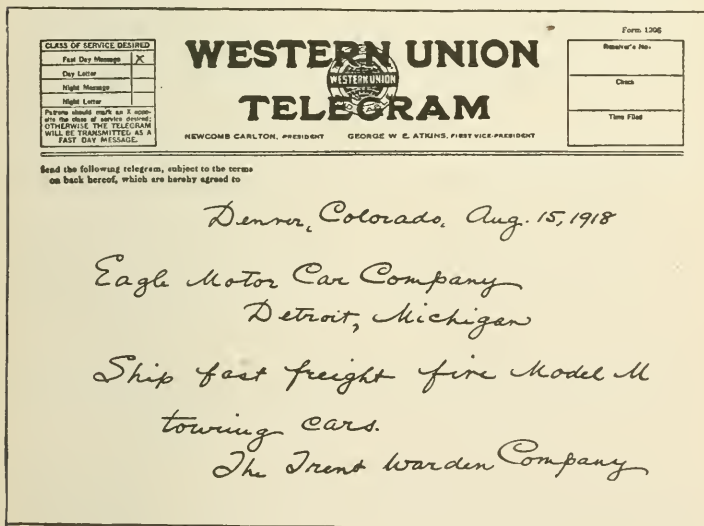 Form 1206
CLASS OF SERVICE DESIRED
Fast Day Message X
Day Letter
Night Message
Night Letter
Patrons should mark an X oppo-
site the class of service desired;
OTHERWISE THE TELEGRAM
WILL BE TRANSMITTED AS A
FAST DAY MESSAGE.
WESTERN UNION
WESTERN UNION
TELEGRAM
NEWCOMB CARLTON, PRESIDENT GEORGE W. E. ATKINS, FIRST VICE-PRESIDENT
Receiver's No.
Check
Time Filed
Send the following telegram, subject to the terms
on back hereof, which are hereby agreed to
Denver, Colorado, Aug. 15, 1918
Eagle Motor Car Company
Detroit, Michigan
Ship fast freight five Model M
towring cars.
The Trent Warden Company